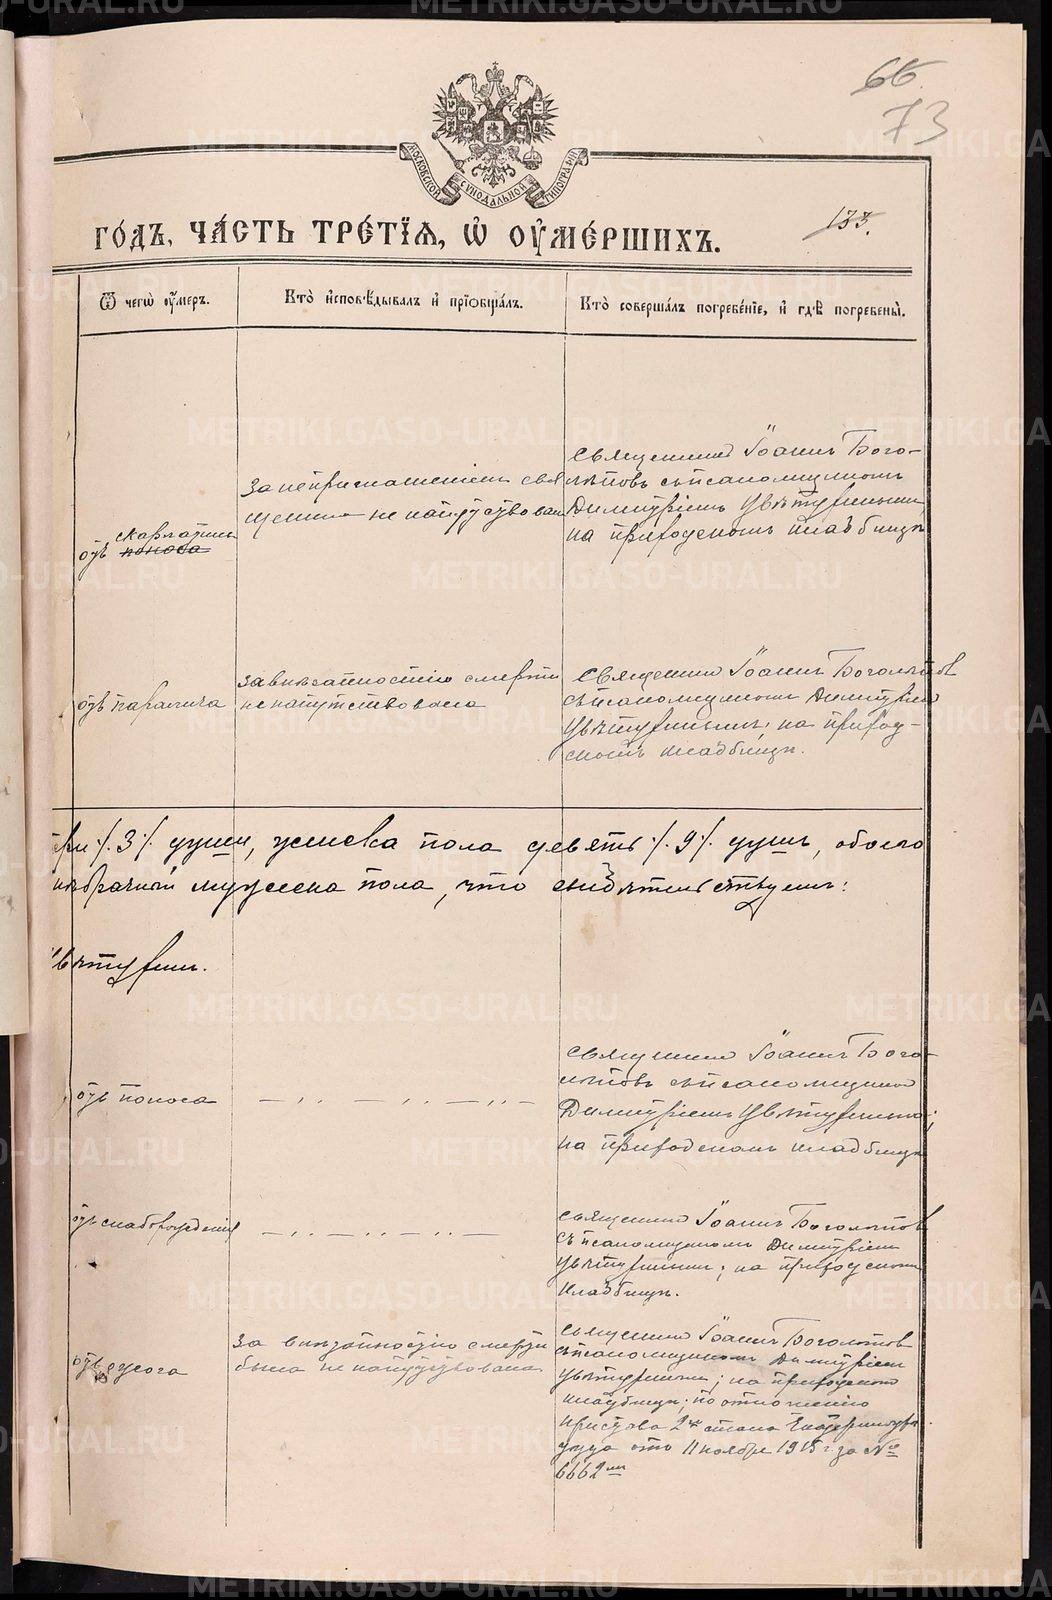 66
73
МОСКОВСКОЙ СѴНОДАЛЬНОЙ ТИПОГРАФІИ
133.
ГО́ДЪ, ЧА́СТЬ ТРЕ́ТІѦ, Ѡ҆ ОУ҆МЕ́РШИХЪ.
Ѿ чегѡ̀ оу҆́меръ.
Кто̀ и҆сповѣ́дывалъ и҆ прїѡбща́лъ.
Кто̀ соверша́лъ погребе́нїе, и҆ гдѣ̀ погребены̀.
отъ скарлатины
поноса
За неприглашеніем свя
щенника не напутствован
Священник Іоанн Бого-
лѣповъ съ псаломщиком
Димитріем Цвѣтухиным
на приходском кладбищѣ
отъ паралича
За внезапностію смерти
не напутствована
Священник Іоанн Боголѣпов
съ псаломщиком Димитріем
Цвѣтухиным; на приход-
ском кладбищѣ.
три ·/.3·/. души, женска пола девять ·/.9·/. душъ, обоего
мужеска пола, что свидѣтельствуем:
Цвѣтухин.
отъ поноса
— ,, — ,, — ,, —
Священник Іоанн Бого-
лѣповъ съ псаломщиком
Димитріем Цвѣтухиным;
на приходском кладбищѣ
отъ слаборожденія
— ,, — ,, — ,, —
Священник Іоанн Боголѣпов
съ псаломщиком Димитріем
Цвѣтухиным; на приходском
кладбищѣ.
отъ ожога
За внезапностію смерти
была не напутствована
Священник Іоанн Боголѣпов
съ псаломщиком Димитріем
Цвѣтухиным; на приходском
кладбищѣ; по отношенію
пристава 2го стана Екатеринбург.
уѣзда отъ 11 ноября 1915 г за №
6662м
METRIKI.GASO-URAL.RU